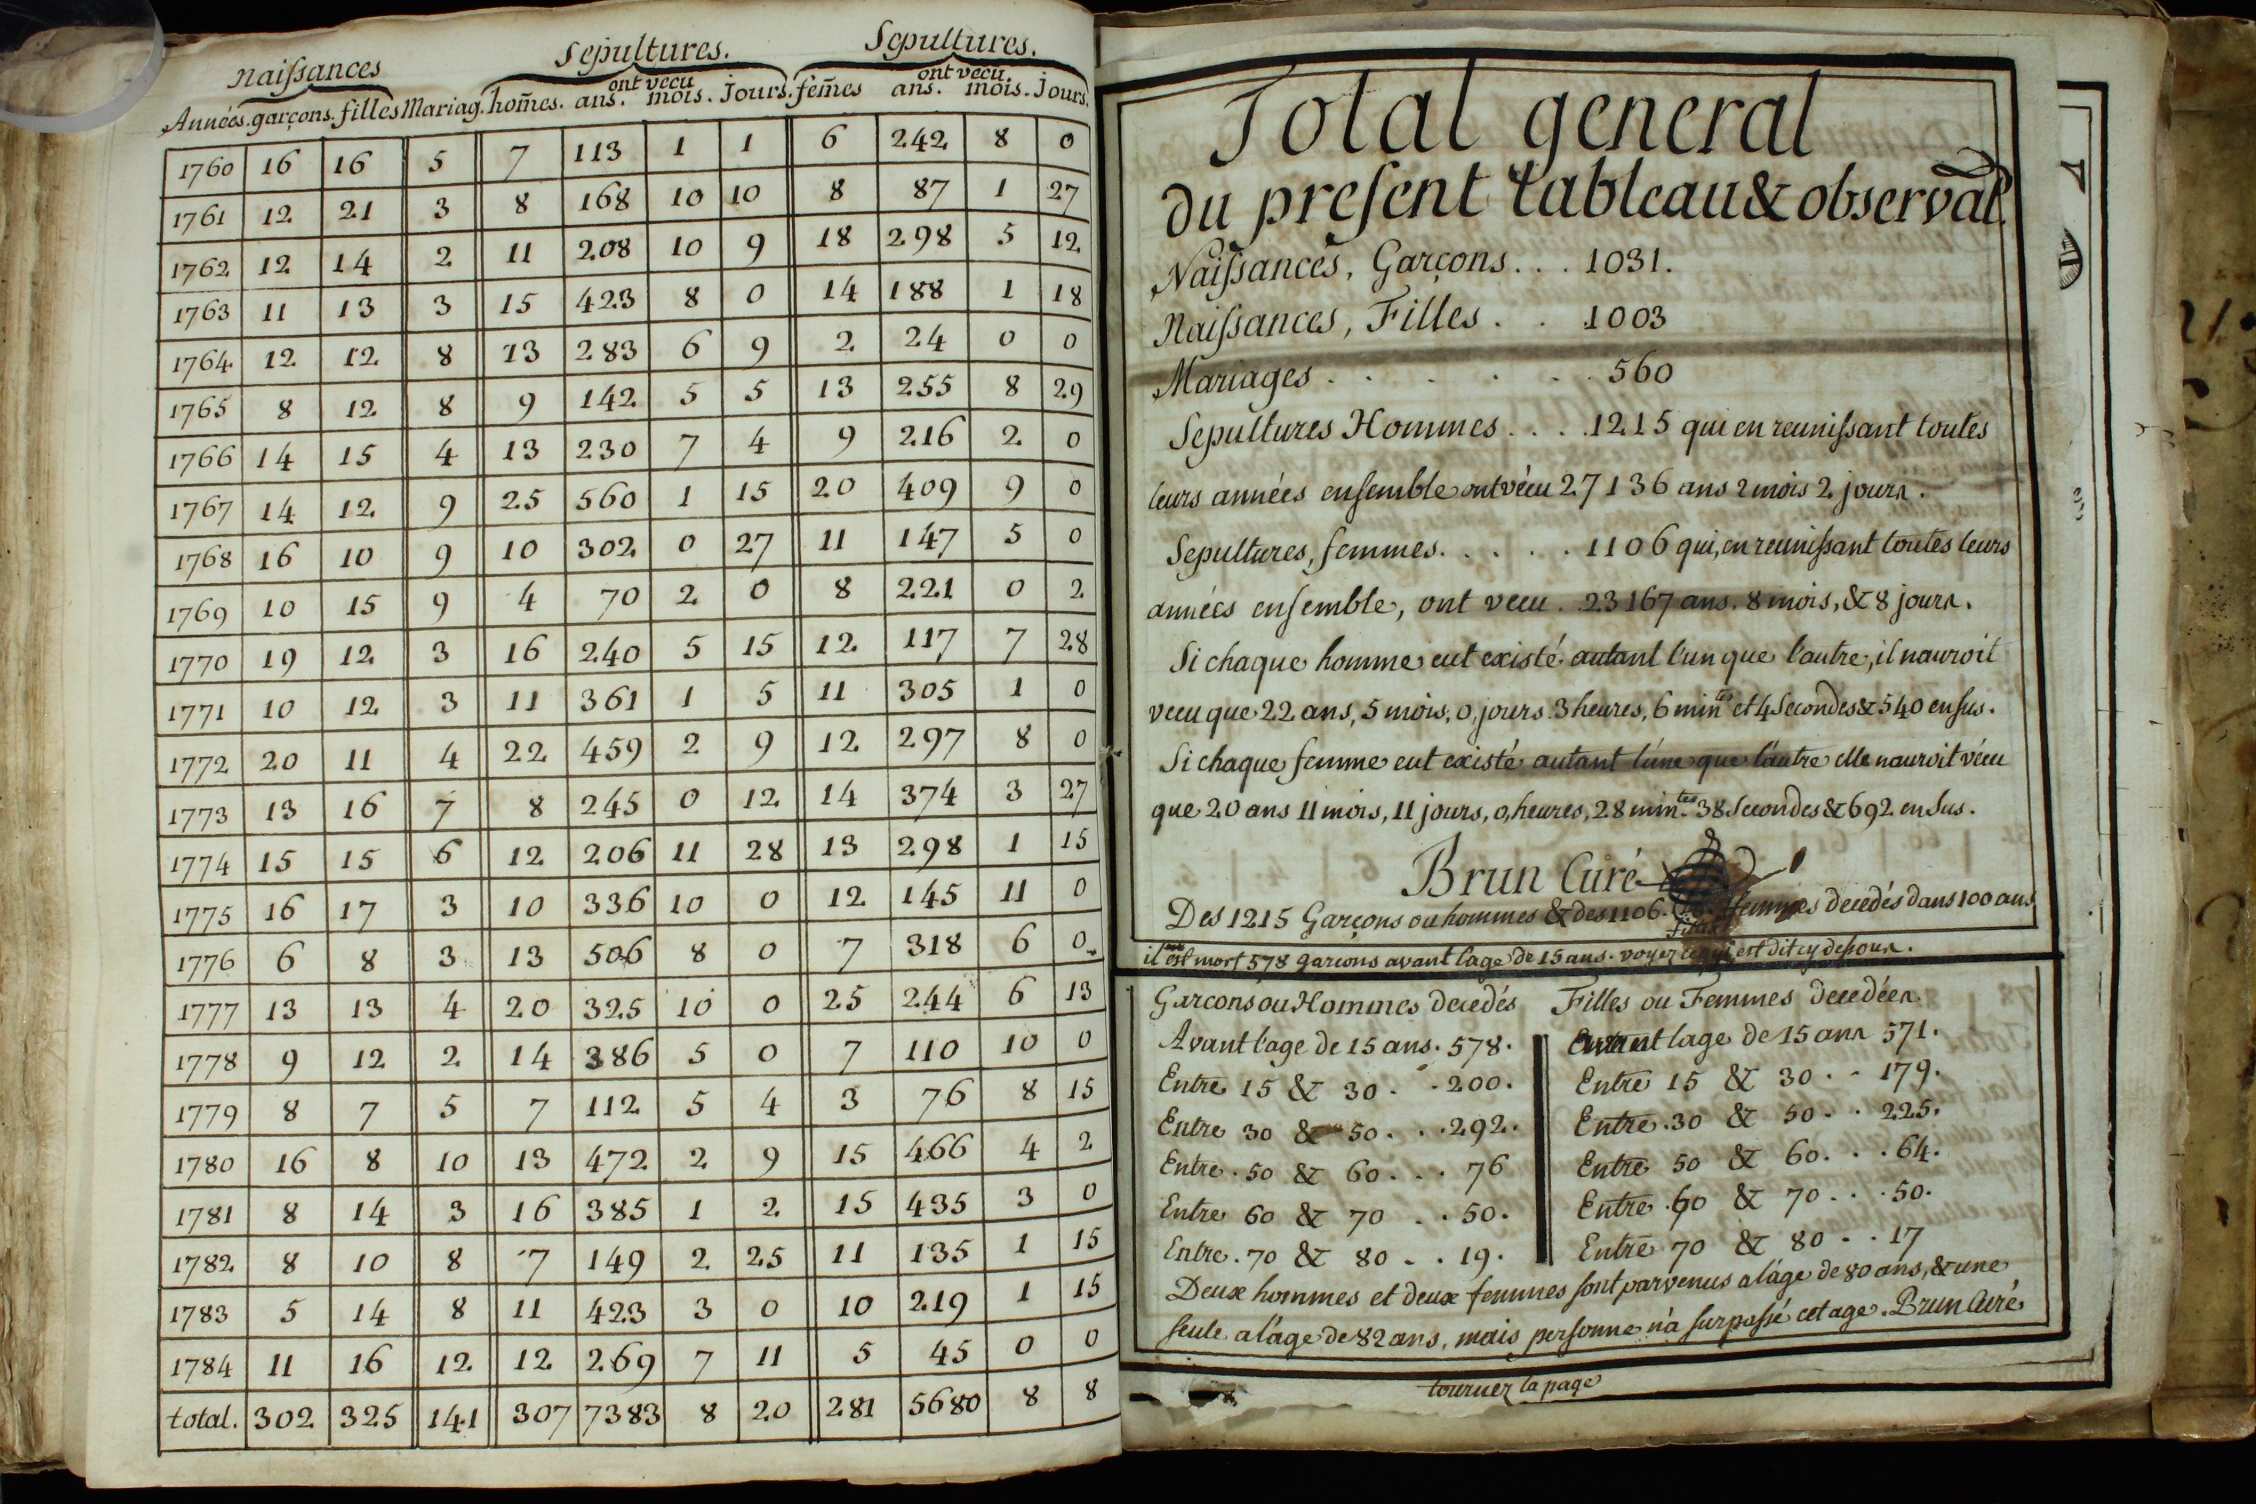 Naiſsances Sepultures. Sepultures.
ont vecu ont vecu.
Années. garçons. filles Mariag. hom̃es. ans. mois. Jours. fem̃es ans. mois. Jours.
1760 16 16 5 7 113 1 1 6 242 8 0
1761 12 21 3 8 168 10 10 8 87 1 27
1762 12 14 2 11 208 10 9 18 298 5 12
1763 11 13 3 15 423 8 0 14 188 1 18
1764 12 12 8 13 283 6 9 2 24 0 0
1765 8 12 8 9 142 5 5 13 255 8 29
1766 14 15 4 13 230 7 4 9 216 2 0
1767 14 12 9 25 560 1 15 20 409 9 0
1768 16 10 9 10 302 0 27 11 147 5 0
1769 10 15 9 4 70 2 0 8 221 0 2
1770 19 12 3 16 240 5 15 12 117 7 28
1771 10 12 3 11 361 1 5 11 305 1 0
1772 20 11 4 22 459 2 9 12 297 8 0
1773 13 16 7 8 245 0 12 14 374 3 27
1774 15 15 6 12 206 11 28 13 298 1 15
1775 16 17 3 10 336 10 0 12 145 11 0
1776 6 8 3 13 506 8 0 7 318 6 0
1777 13 13 4 20 325 10 0 25 244 6 13
1778 9 12 2 14 386 5 0 7 110 10 0
1779 8 7 5 7 112 5 4 3 76 8 15
1780 16 8 10 13 472 2 9 15 466 4 2
1781 8 14 3 16 385 1 2 15 435 3 0
1782 8 10 8 7 149 2 25 11 135 1 15
1783 5 14 8 11 423 3 0 10 219 1 15
1784 11 16 12 12 269 7 11 5 45 0 0
total. 302 325 141 307 7383 8 20 281 5680 8 8
Total general
du preſent tableau & observat.
Naiſsances, Garçons . . . 1031.
Naiſsances, Filles . . 1003
Mariages . . . . . . 560
Sepultures Hommes . . . . 1215 qui en reuniſsant toutes
leurs années enſemble ont vécu 27136 ans 2 mois 2 jours.
Sepultures, femmes. . . . . 1106 qui, en reuniſsant toutes leurs
années enſemble, ont vecu . 23167 ans. 8 mois, & 8 jours.
Si chaque homme eut existé autant l'un que l'autre, il nauroit
vecu que 22 ans, 5 mois, 0, jours 3 heures, 6 min.tes et 4 Secondes & 540 en ſus.
Si chaque femme eut existé autant l'une que l'autre elle nauroit vécu
que 20 ans 11 mois, 11 jours, 0, heures, 28 min.tes 38 Secondes & 692 en ſus.
Brun Curé
Des 1215 Garçons ou hommes & des 1106 filles femmes decedés dans 100 ans
il est mort 578 garçons avant lage de 15 ans. voyez ce qui est dit cy deſsous.
Garçons ou Hommes decedés
Avant l'age de 15 ans. 578.
Entre 15 & 30 . . 200.
Entre 30 & 50 . . . 292.
Entre . 50 & 60 . . . 76
Entre 60 & 70 . . 50.
Entre . 70 & 80 . . 19.
Filles ou Femmes decedées.
Avant lage de 15 ans 571.
Entre 15 & 30 . . 179.
Entre . 30 & 50 . . 225.
Entre 50 & 60 . . . 64.
Entre . 60 & 70 . . . 50.
Entre 70 & 80 . . 17
Deux hommes et deux femmes ſont parvenus a l'áge de 80 ans, & une
ſeule a l'áge de 82 ans, mais perſonne n'à ſurpaſsé cet age. Brun Curé
tournez la page